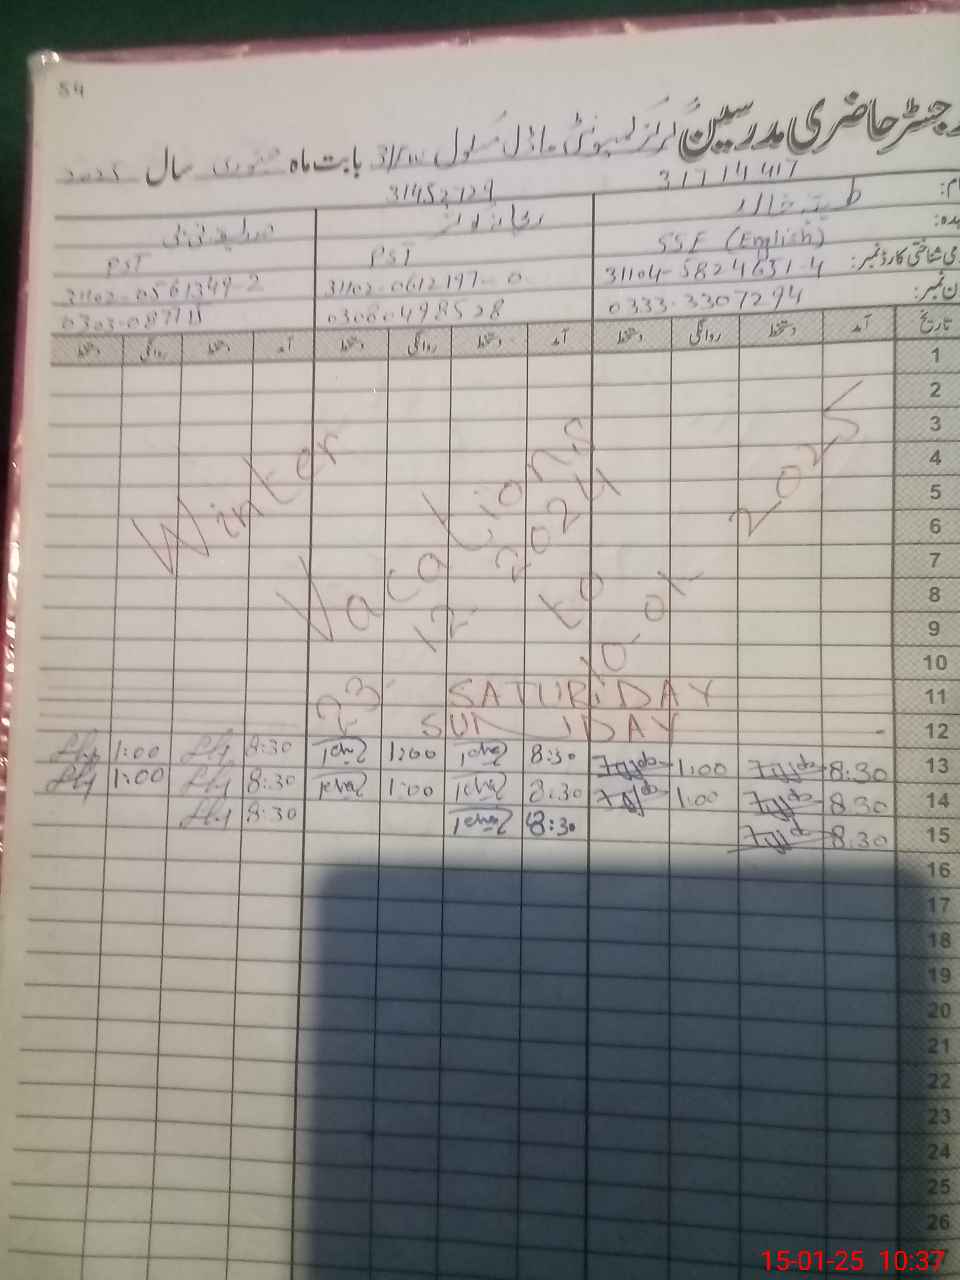 54
رجسٹر حاضری مدرسین گرلز کمیونٹی ماڈل سکول بابت ماہ جنوری سال 2025
31714417
31452729
نام:
عہدہ:
SSE (English)
PST
PST
قومی شناختی کارڈ نمبر:
31104-5824631-4
31102-0612197-0
31102-0561349-2
فون نمبر:
0333-3307294
03060498528
تاریخ آمد دستخط روانگی دستخط آمد دستخط روانگی دستخط آمد دستخط روانگی دستخط
1
2
3
4
5
6
7
8
9
10
Winter
Vacations
23 12 2024
to
10 01 2025
11 SATURDAY
12 SUNDAY
13 8:30 1:00 8:30 1:00 8:30 1:00
14 8:30 1:00 8:30 1:00 8:30 1:00
15 8:30 8:30 8:30
16
17
18
19
20
21
22
23
24
25
26
15-01-25 10:37